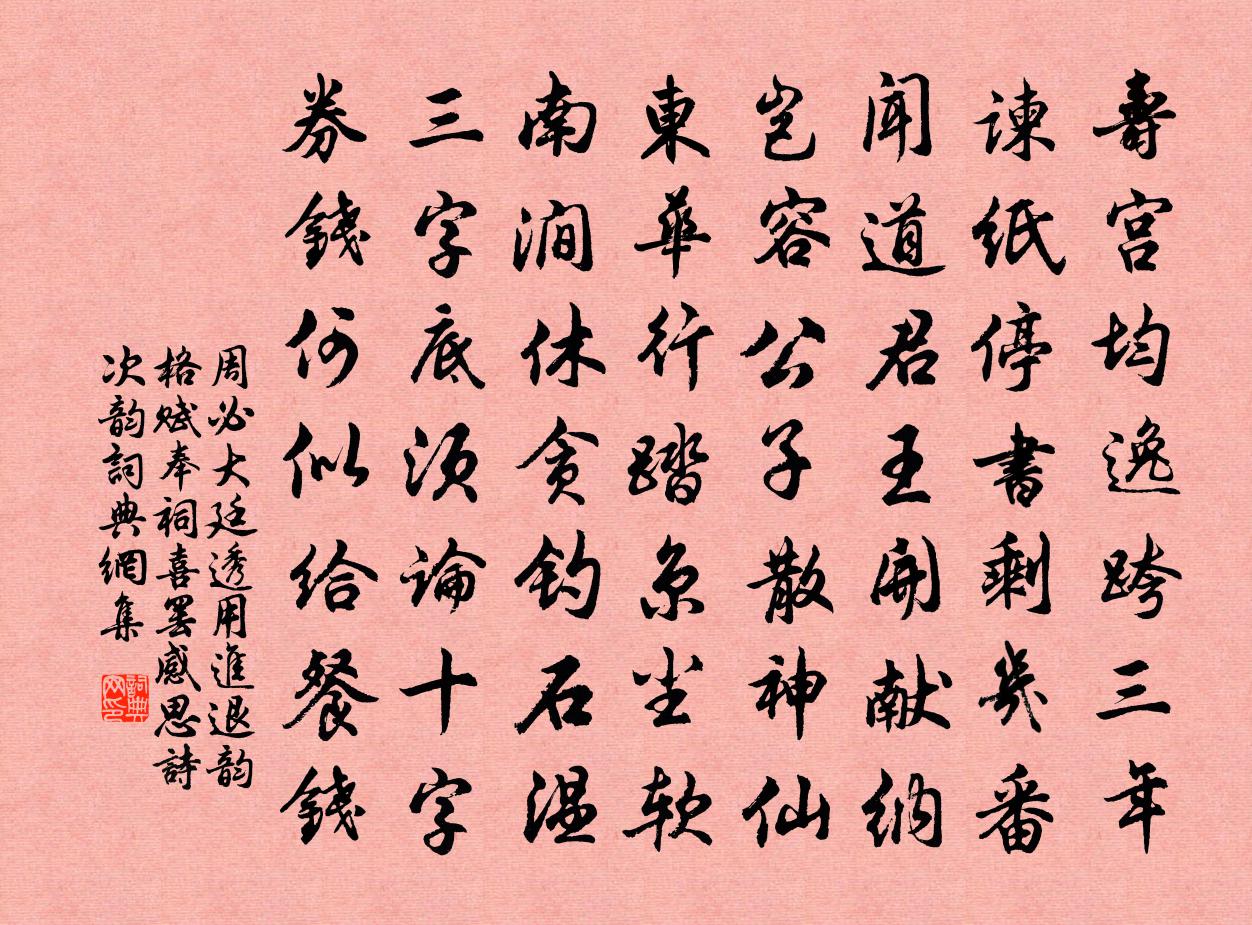 壽宮均逸跨三年
諫紙停書剩幾番
聞道君王開献纳
豈容公子散神仙
東華行踏京尘软
南澗休貪釣石温
三字底须論十字
券錢何似给餐錢
周必大廷透用進退韵
格赋奉祠喜罢感思詩
次韵詞典網集
詞典网印